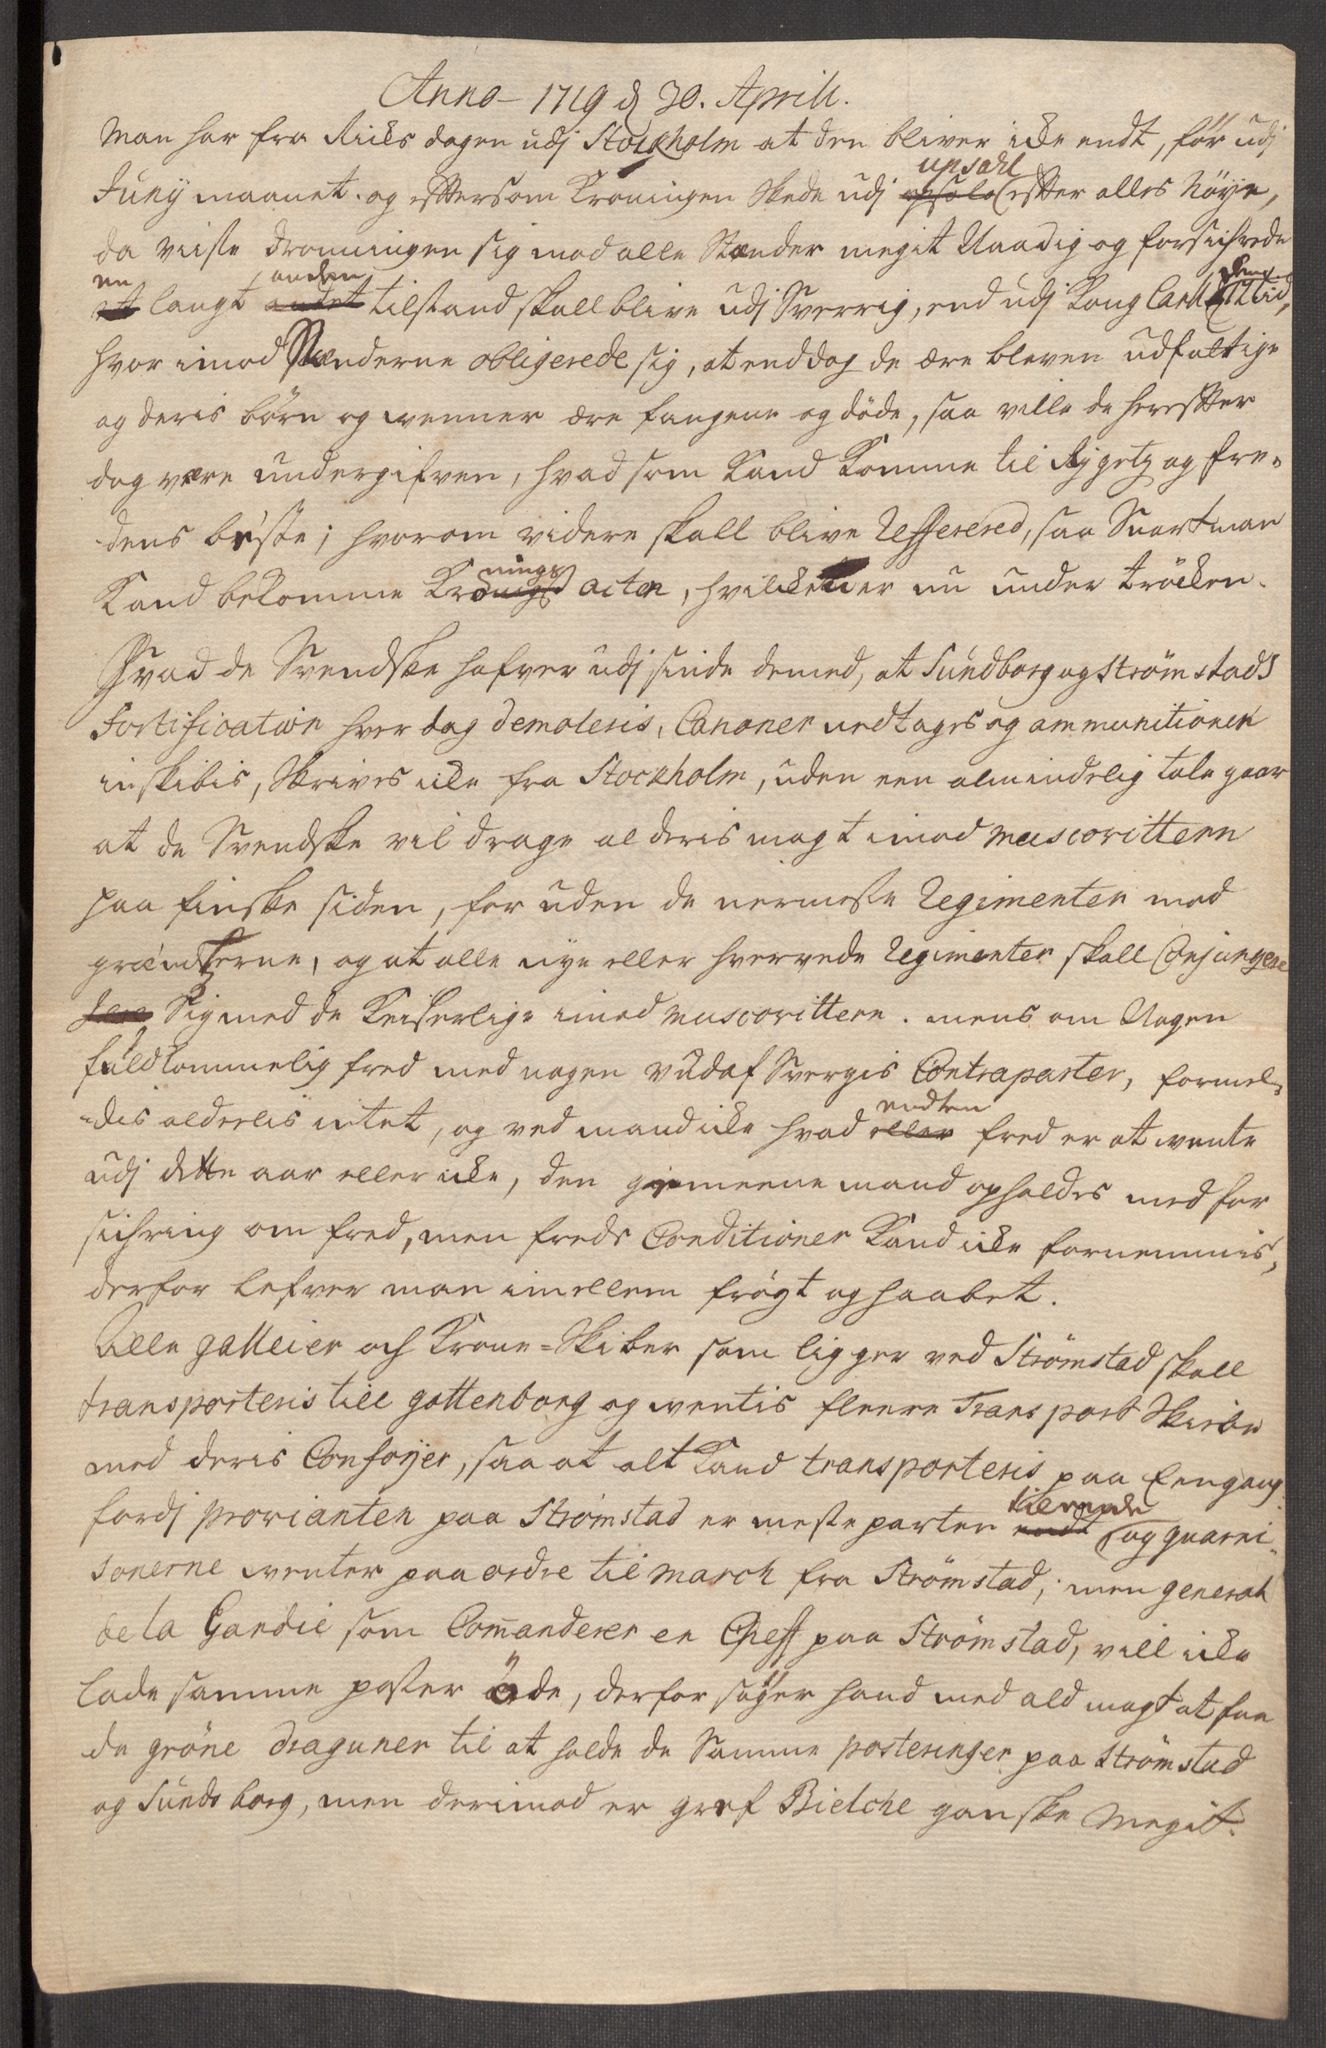 Anno 1719 d 30. Aprill.
Man har fra Ricks dagen udj Stockholm at den bliver icke endt, før udj
Junij maanet. og efftersom Kroningen skede udj upsahl effter alles Nöye,
da viiste dronningen sig mod alle Stænder megit Naadig og forsichrede
en langt anden tilstand skall blive udj Sverrig, end udj Kong Carl den 12 tid,
hvor imod Stænderne obligerede sig, at end dog de ere bleven udfattige
og deris börn og wenner ere fangene og döde, saa ville de hereffter
dog være undergifven, hvad som Kand Komme til Rygetz og fre-
dens bæste; hvorom videre skall blive Refferered, saa Snart man
Kand bekomme Kronings acten, hvilcken er nu under tröcken.
Hvad de Svendske hafver udj sinde dermed, at Sundborg og Strömstads
Fortification hver dag demoleris, Canoner uedtages og ammunitionen
inskibis, skrives icke fra Stockholm, uden een almindelig tale gaar
at de Svendske vil drage al deris magt imod muscovittern
paa finske siden, for uden de nermeste Regimenter med
grændserne, og at alle nye eller hvervede Regimenter skall Conjungere
sig med de Keiserlige imod muscovittern. mens om Nogen
fuldkommelig fred med nogen vudaf Svergis Contraparter, formel-
dis alderlis intet, og ved mand icke hvad endten fred er at wente
udj dette aar eller icke, den gemeene mand opholdes med for
sichring om fred, men freds Conditioner Kand icke fornemmis,
derfor lefver man imellem frögt og haabet.
Alle galleier och Krone-Skiber som ligger ved Strömstad skall
transporteris till gottenborg og wentis fleere Transport Skibe
med deris Confoyer, saa at alt Kand transporteris paa Een gang
fordj provianten paa Strömstad er meste parten til ende og guarni-
sonerne wenter paa ordre til march fra Strömstad; men general
de la Gardie som Commanderer en Cheff paa Strömstad, vill icke
lade samme poster öde, derfor söger hand med ald magt at faa
de gröne draguner til at holde de samme posteringer paa Strömstad
og Sundsborg, men derimod er gref Bielche ganske megit.